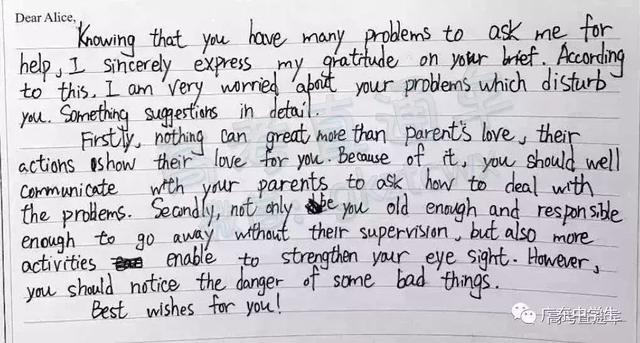 Dear Alice,
Knowing that you have many problems to ask me for
help, I sincerely express my gratitude on your brief. According
to this, I am very worried about your problems which disturb
you. Something suggestions in detail.
Firstly, nothing can great more than parent's love, their
actions show their love for you. Because of it, you should well
communicate with your parents to ask how to deal with
the problems. Secondly, not only be you old enough and responsible
enough to go away without their supervision, but also more
activities enable to strengthen your eye sight. However,
you should notice the danger of some bad things.
Best wishes for you!
广东中学生